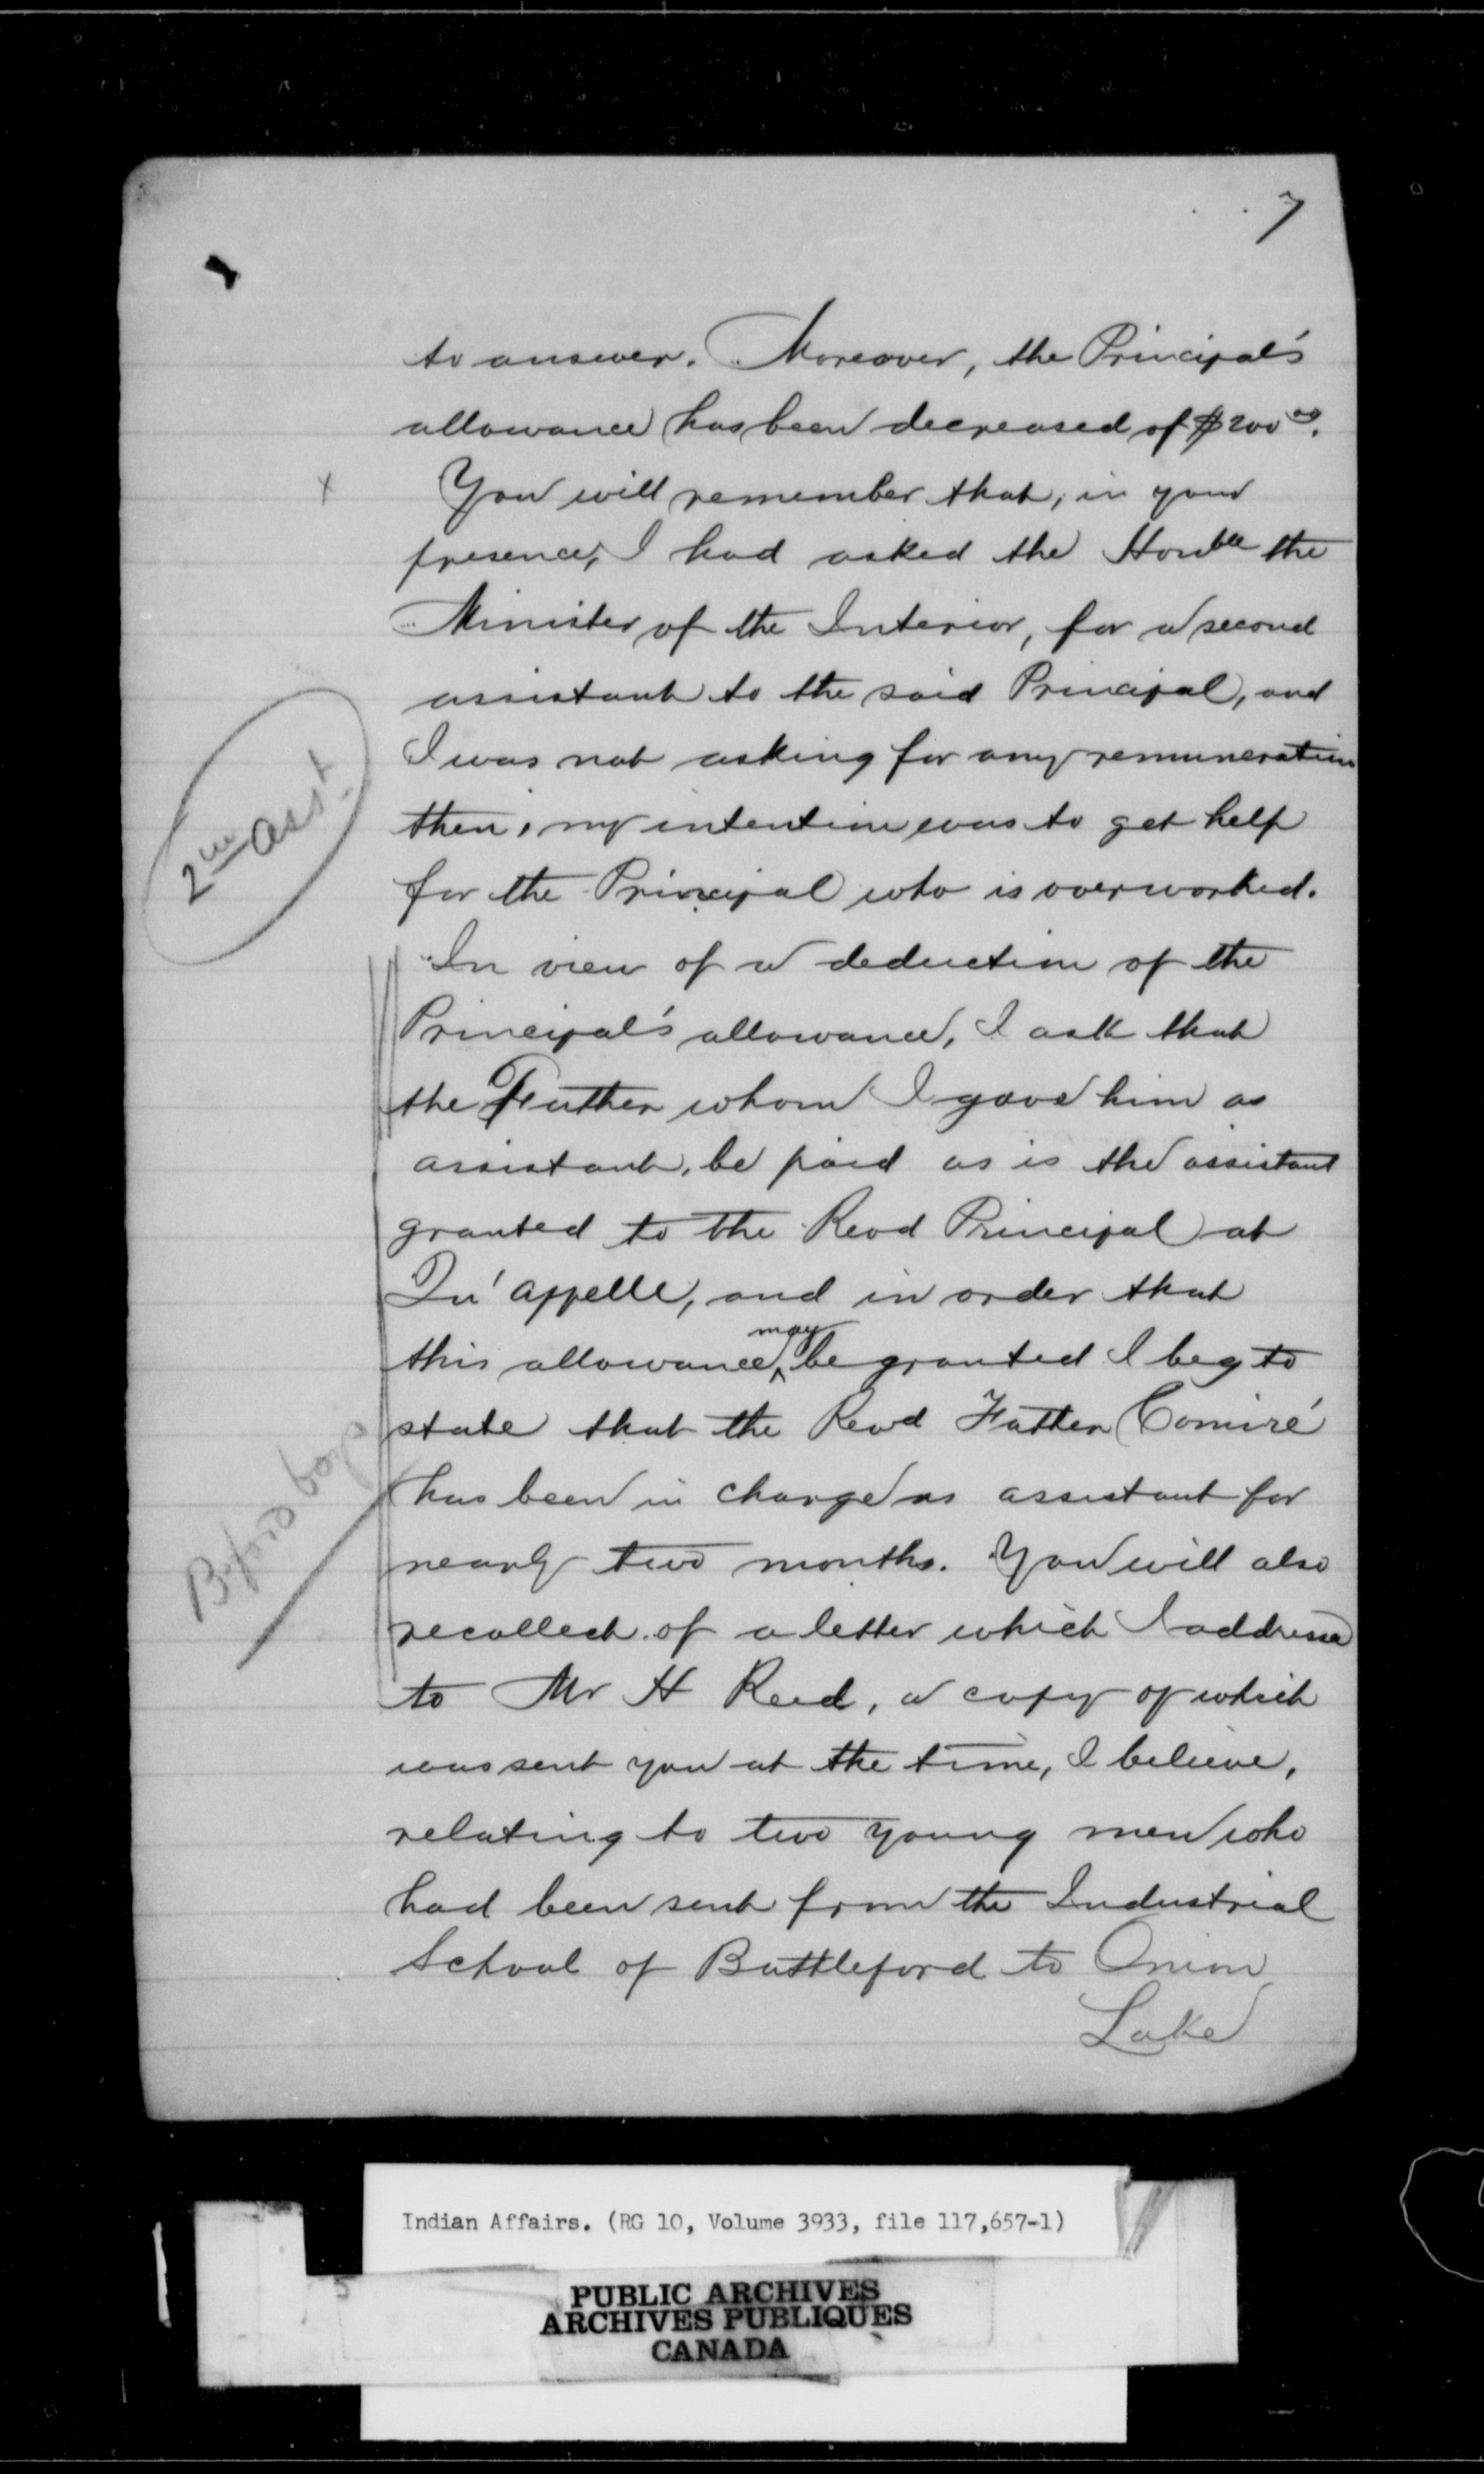 7
to answer. Moreover, the Principal's
allowance has been decreased of $200.00.
x
You will remember that, in your
presence, I had asked the Honble the
Minister of the Interior, for a second
assistant to the said Principal, and
I was not asking for any remuneration
2nd asst.
then, my intention was to get help
for the Principal who is overworked.
In view of a deduction of the
Principal's allowance, I ask that
the Father whom I gave him as
assistant, be paid as is the assistant
granted to the Revd Principal at
Qu'appelle, and in order that
this allowance may be granted I beg to
state that the Revd Father Comiré
has been in charge as assistant for
B.ford boys
nearly two months. You will also
recollect of a letter which I addressed
to Mr H Reed, a copy of which
was sent you at the time, I believe,
relating to two young men who
had been sent from the Industrial
School of Battleford to Onion
Lake
Indian Affairs. (RG 10, Volume 3933, file 117,657-1)
PUBLIC ARCHIVES
ARCHIVES PUBLIQUES
CANADA